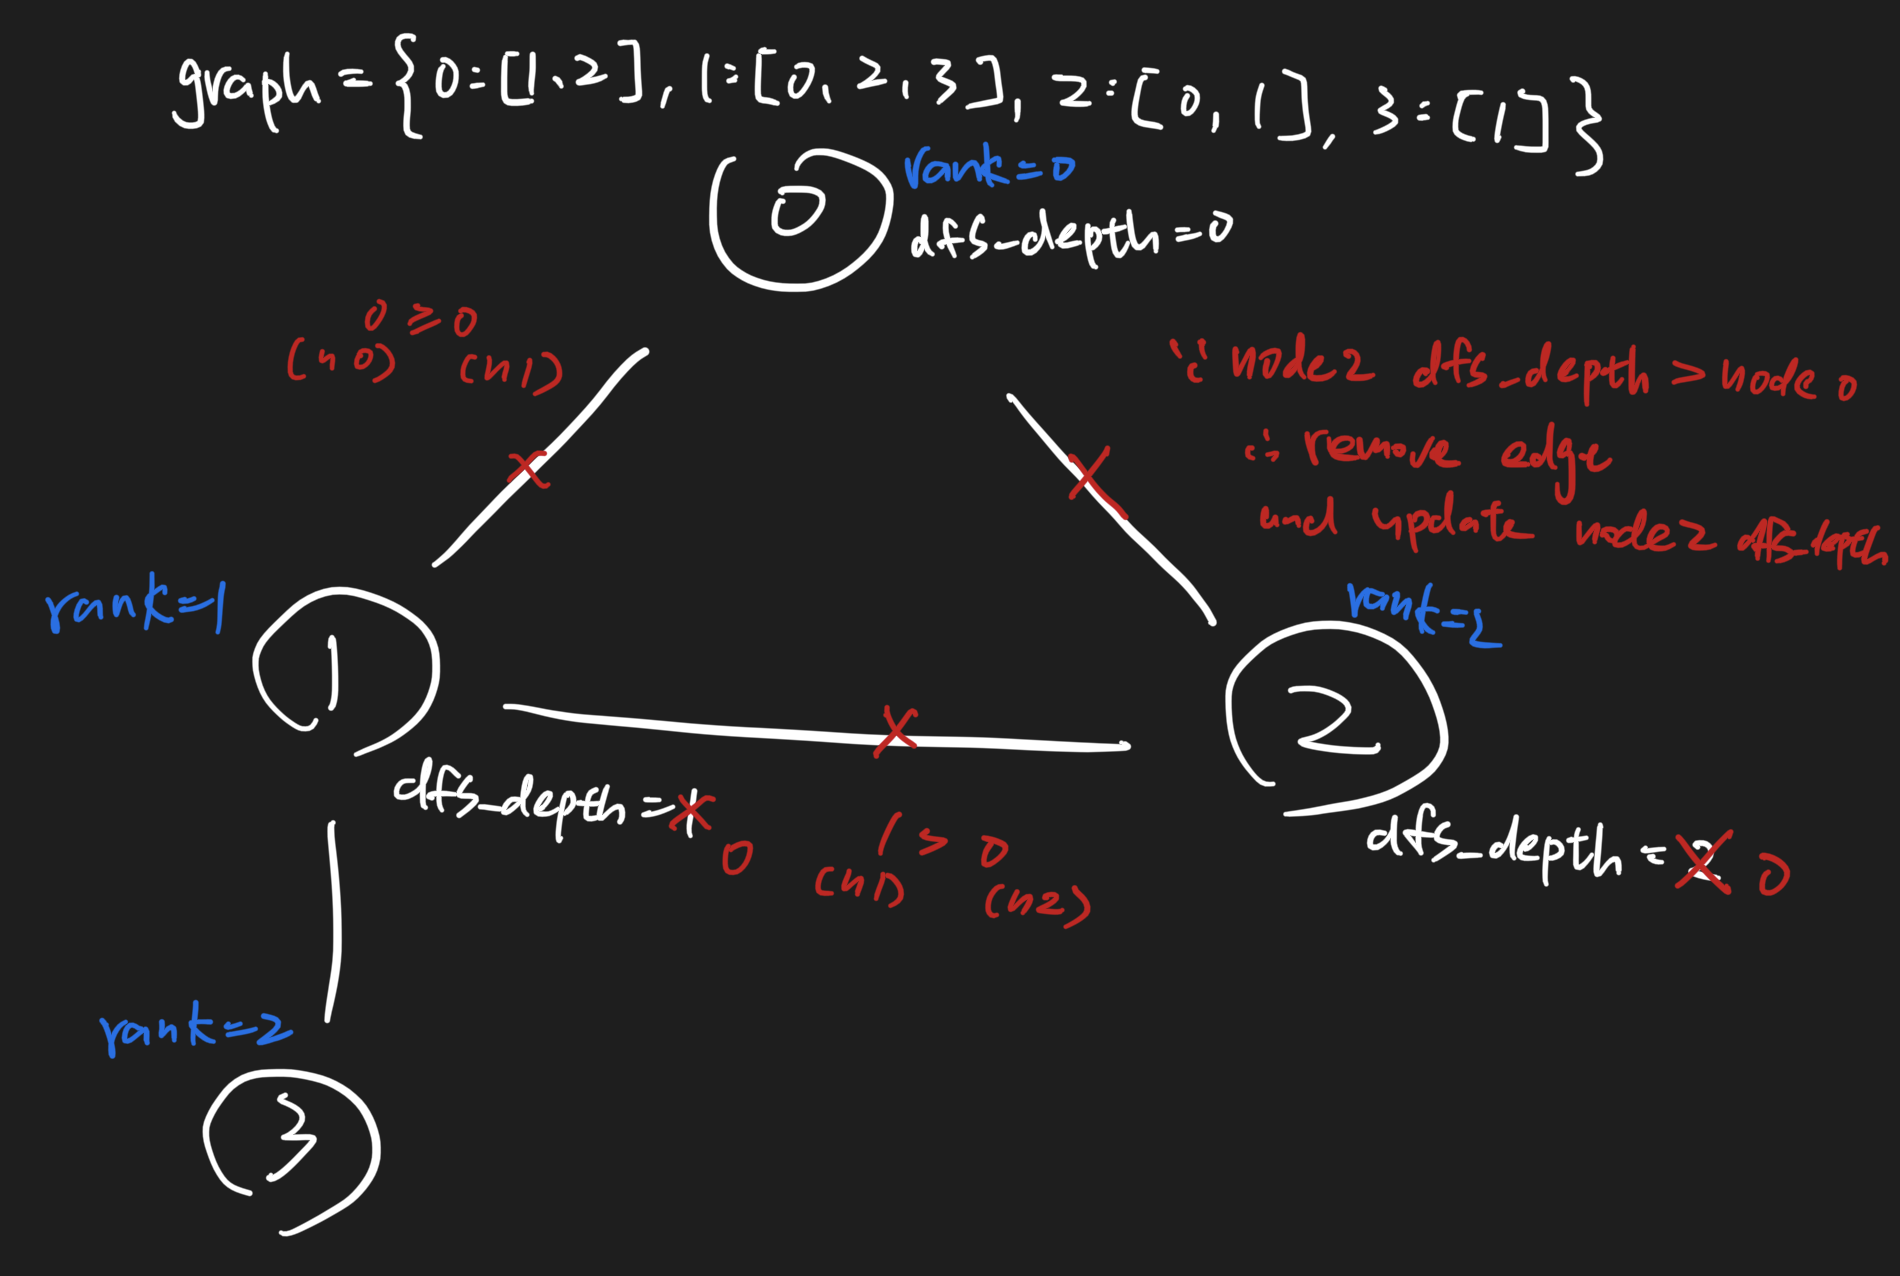 graph = {0:[1,2], 1:[0,2,3], 2:[0,1], 3:[1]}
0
rank=0
dfs_depth=0
0 ≥ 0
(n0) (n1)
∵ node2 dfs_depth > node 0
∴ remove edge
and update node2 dfs_depth
rank=1
1
rank=2
2
dfs_depth=1
0
1 > 0
(n1) (n2)
dfs_depth=2 0
rank=2
3